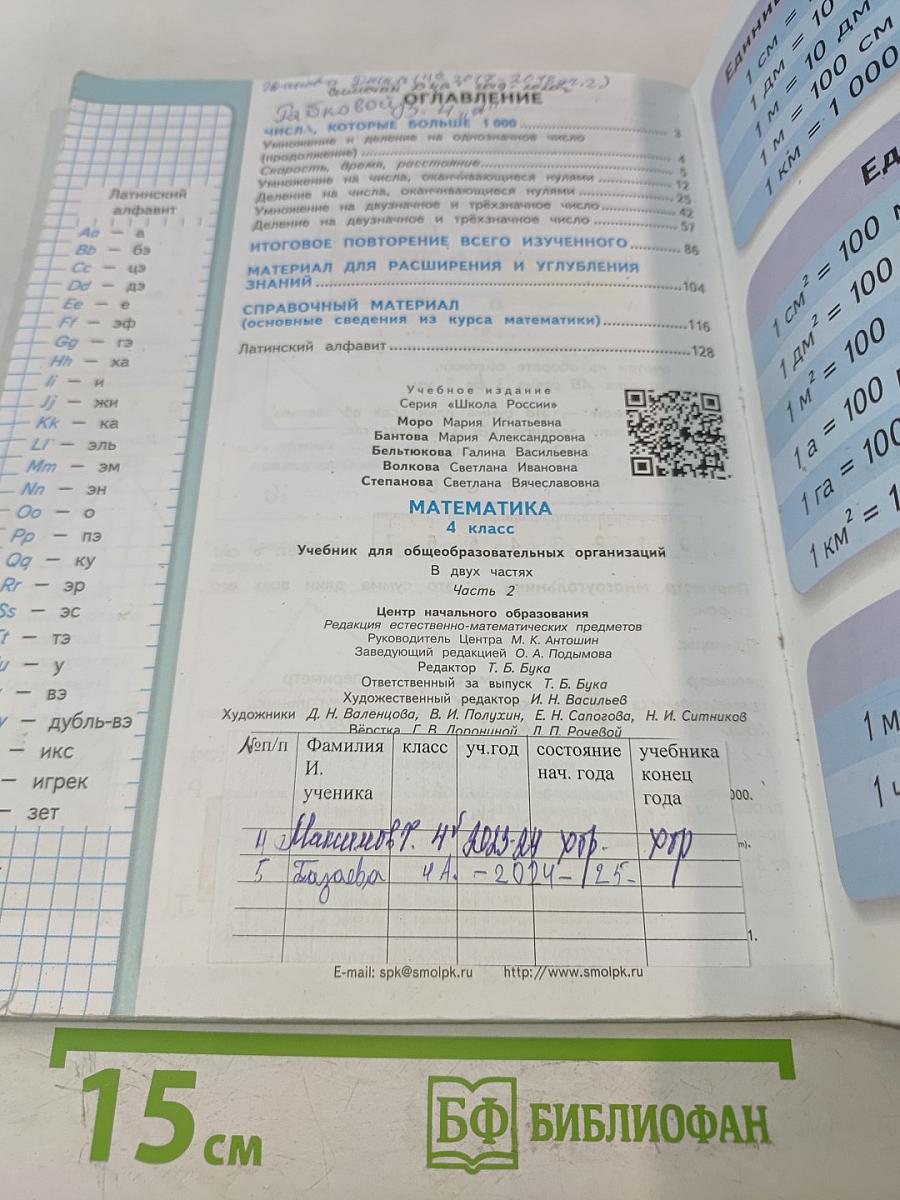 Латинский
алфавит
Aa — а
Bb — бэ
Cc — цэ
Dd — дэ
Ee — е
Ff — эф
Gg — гэ
Hh — ха
Ii — и
Jj — жи
Kk — ка
Ll — эль
Mm — эм
Nn — эн
Oo — о
Pp — пэ
Qq — ку
Rr — эр
Ss — эс
— тэ
— у
— вэ
— дубль-вэ
— икс
— игрек
— зет
ОГЛАВЛЕНИЕ
ЧИСЛА, КОТОРЫЕ БОЛЬШЕ 1 000 3
Умножение и деление на однозначное число
(продолжение) 4
Скорость, время, расстояние 5
Умножение на числа, оканчивающиеся нулями 12
Деление на числа, оканчивающиеся нулями 25
Умножение на двузначное и трёхзначное число 42
Деление на двузначное и трёхзначное число 57
ИТОГОВОЕ ПОВТОРЕНИЕ ВСЕГО ИЗУЧЕННОГО 86
МАТЕРИАЛ ДЛЯ РАСШИРЕНИЯ И УГЛУБЛЕНИЯ
ЗНАНИЙ 104
СПРАВОЧНЫЙ МАТЕРИАЛ
(основные сведения из курса математики) 116
Латинский алфавит 128
Учебное издание
Серия «Школа России»
Моро Мария Игнатьевна
Бантова Мария Александровна
Бельтюкова Галина Васильевна
Волкова Светлана Ивановна
Степанова Светлана Вячеславовна
МАТЕМАТИКА
4 класс
Учебник для общеобразовательных организаций
В двух частях
Часть 2
Центр начального образования
Редакция естественно-математических предметов
Руководитель Центра М. К. Антошин
Заведующий редакцией О. А. Подымова
Редактор Т. Б. Бука
Ответственный за выпуск Т. Б. Бука
Художественный редактор И. Н. Васильев
Художники Д. Н. Валенцова, В. И. Полухин, Е. Н. Сапогова, Н. И. Ситников
Вёрстка Г. В. Дорониной, Л. П. Рочевой
№п/п Фамилия И. ученика класс уч.год состояние нач. года учебника конец года
4 Максимов Г. 4 2023-24 хор. хор
5 4А. -2024- 25-
E-mail: spk@smolpk.ru http://www.smolpk.ru
1 см =
1 дм = 10
1 м = 10 дм
1 м = 100 см
1 км = 1 000
1 см² = 100 м
1 дм² = 100
1 м² = 100
1 а = 100
1 га = 100
1 км² = 1
1 м
1 ч
15 см
БФ БИБЛИОФАН